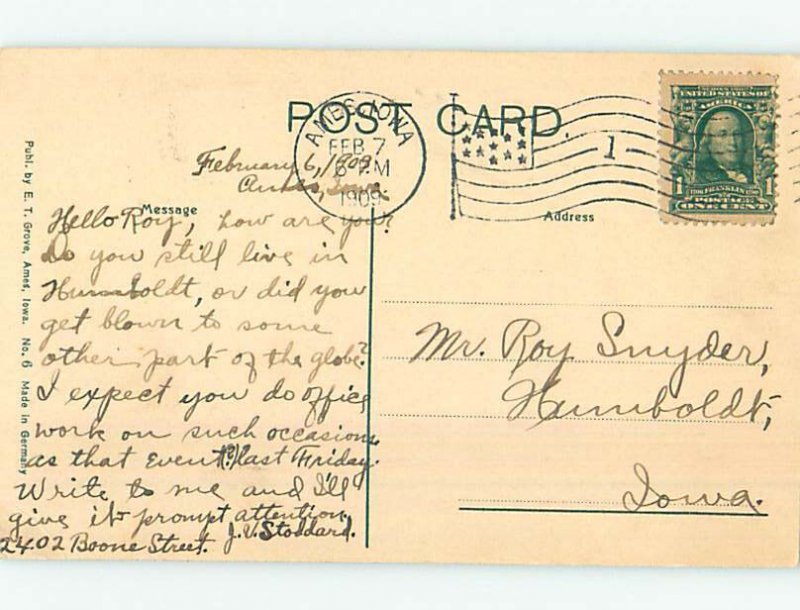 POST CARD.
AMES, IOWA
FEB 7
6 PM
1909
1
UNITED STATES OF
AMERICA
1 FRANKLIN 1
POSTAGE
ONE CENT
Publ. by E. T. Grove, Ames, Iowa. No. 6 Made in Germany
Message
Address
February 6, 1909
Ames, Iowa.
Hello Roy, how are you?
Do you still live in
Humboldt, or did you
get blown to some
other part of the globe?
I expect you do office
work on such occasions
as that event(?) last Friday.
Write to me and I'll
give it prompt attention.
J. V. Stoddard.
2402 Boone Street.
Mr. Roy Snyder,
Humboldt,
Iowa.